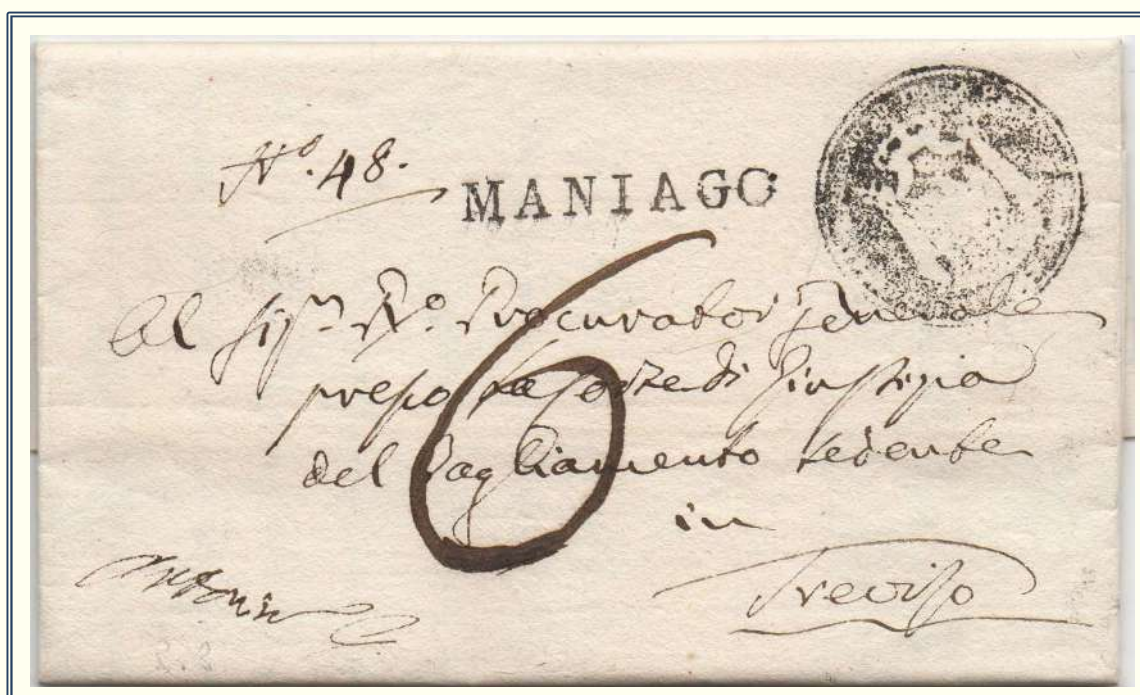 N.º 48.
MANIAGO
6
Al Sig.r R.º Procurator Generale
presso la Corte di Giustizia
del Tagliamento sedente
in
Treviso